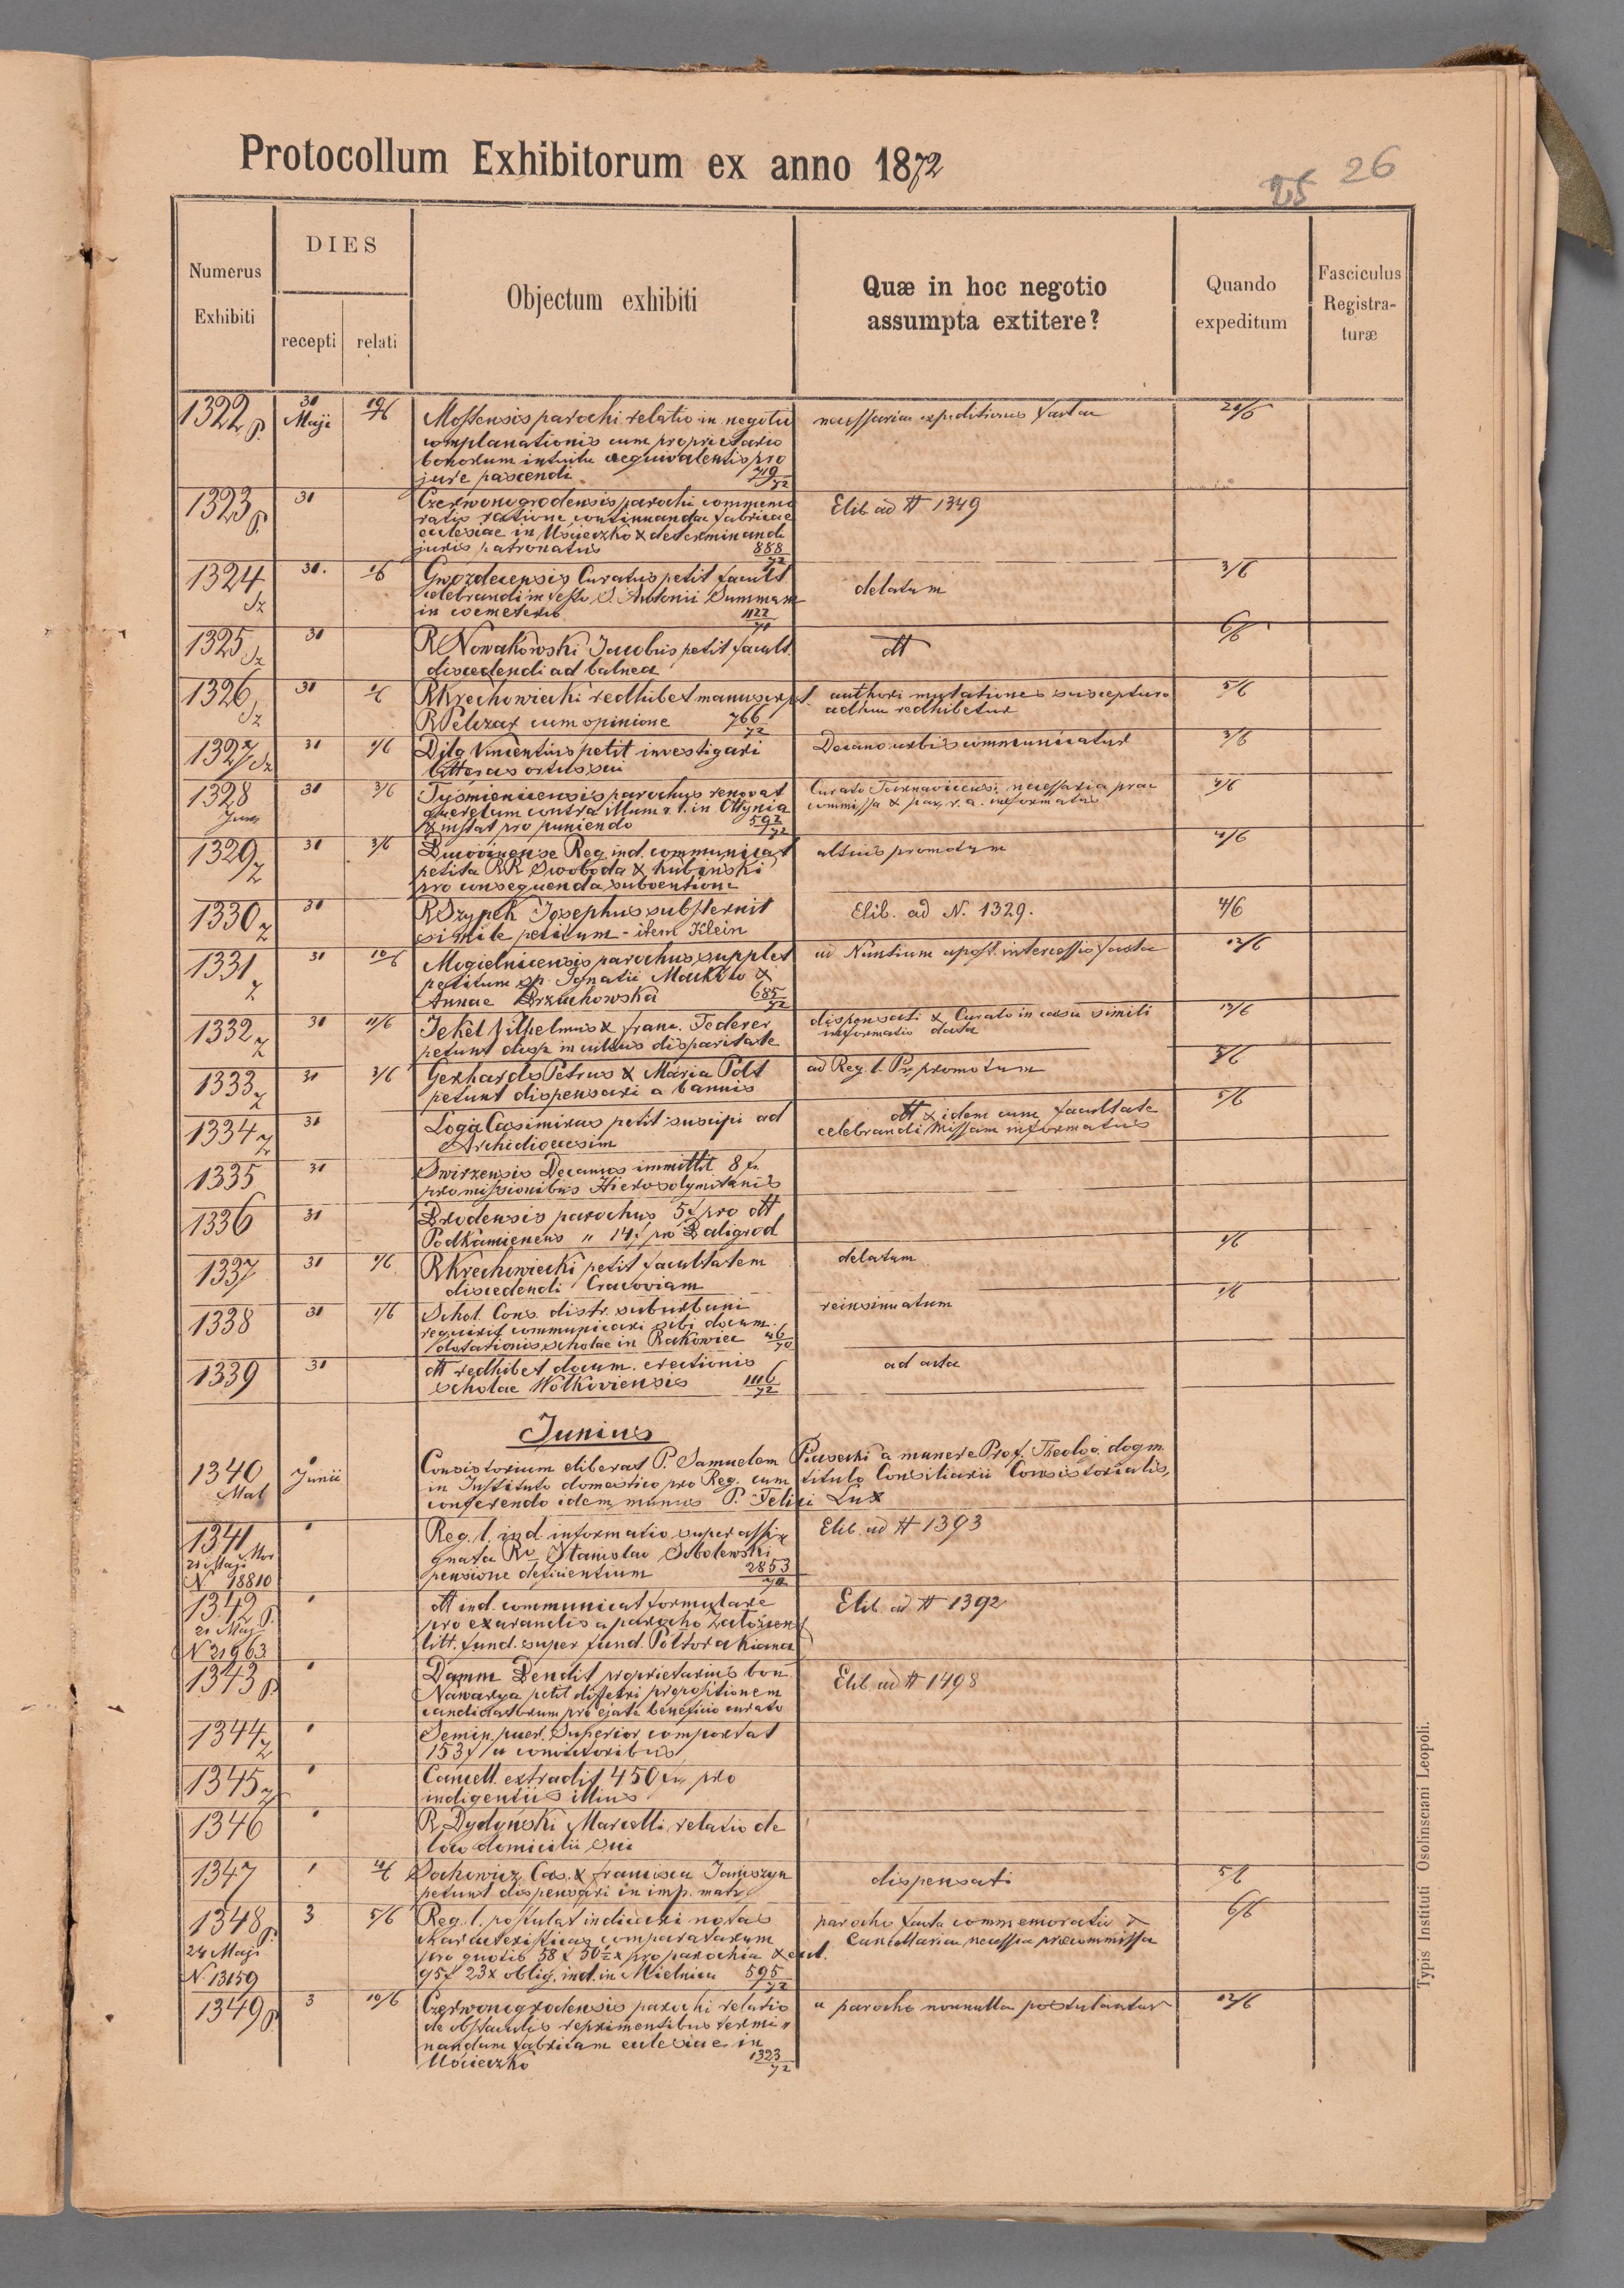 Protocollum Exhibitorum ex anno 1872
25 26
Numerus Exhibiti
DIES
recepti relati
Objectum exhibiti
Quæ in hoc negotio assumpta extitere?
Quando expeditum
Fasciculus Registra-turæ
1322 p. 30 Maji 19/6 Mostensis parochi relatio in negotio necessariae expeditiones factae 20/6
complanationis cum proprietario
bonorum intuitu aequivalentis pro
jure pascendi 719/72
1323 p. 30 Czerwonogrodensis parochi commemo Elib. ad # 1349
ratio ratione continuandae fabricae
ecclesiae in Uścieczko & determinandi
juris patronatus 888/72
1324 Sz 30. 1/6 Gwozdecensis Curatus petit facult. delatum 3/6
celebrandi in festo S. Antonii Summam
in coemeterio 1122/71
1325 Sz 30 R Nowakowski Jacobus petit facult. dtt 6/6
discedendi ad balnea
1326 Sz 30 R Krechowiecki redhibet manuscript. authori mutationes suscepturo 5/6
R Pelczar cum opinione 766/72 adhuc redhibetur
1327 Sz 31 1/6 Dilg Vincentius petit investigari Decano urbis communicatur 3/6
litteras ortus sui
1328 31 3/6 Tysmienicensis parochus renovat Curato necessaria prae
querelam contra illum r. l. in Ottynia commissa & par. r. a. informatus
& instat pro puniendo 592/72
1329 z 31 3/6 Bucovinense Reg. ind. communicat altius promotum 4/6
petita RR Swoboda & Kubinski
pro consequenda subventione
1330 z 31 R Szypek Josephus substernit Elib. ad N. 1329. 4/6
simile petitum - item Klein
1331 z 31 10/6 Mogielnicensis parochus supplet ad Nuntium apost. intercessio facta 12/6
petitum sp. Ignatii &
Annae Brzuchowska 685/72
1332 z 31 11/6 Jekel Vilhelmus & franc. Federer dispensati & Curato in casu simili 12/6
petunt disp. in cultus disparitate informatio data
1333 z 31 3/6 Gerhards Petrus & Maria Polt ad Reg. l. Pr. promotum
petunt dispensari a bannis
1334 z 31 Loga Casimirus petit suscipi ad dtt & idem cum facultate 5/6
Archidioecesim celebrandi Missam informatus
1335 31 Swirzensis Decanus immittit 8 fr.
pro missionibus Hierosolymitanis
1336 31 Brodensis parochus 5 f pro dtt
Podkamienens " 14 f pro Baligrod
1337 31 1/6 R Krechowiecki petit facultatem delatum 1/6
discedendi Cracoviam
1338 31 1/6 Schol. Cons. distr. suburbani reinsinuatum 1/6
requirit communicari sibi docum.
dotationis scholae in Rakowiec
1339 31 dtt redhibet docum. erectionis ad acta
scholae Wolkoviensis 1116/72
Junius
1340 1 Junii Consistorium eliberat P. Samuelem Piasecki a munere Prof. Theolog. dogm.
Mat in Instituto domestico pro Reg. cum titulo Consiliarii Consistorialis,
conferendo idem munus P. Felici Lux
1341 1 Reg. l. ind. informatio super assi Elib. ad # 1393
21 Maji gnata Rv Stanislao Sobolewski
N 18810 pensione deficientium 2853
1342 p. 1 dtt ind. communicat formulare Elib. ad # 1392
21 Maji pro exarandis a parocho Załoźiens
N 21963 litt. fund. super fund. Poltorakiana
1343 p. 1 Damm Bendit proprietarius bon. Elib. ad # 1498
Nawarya petit differri propositionem
candidatorum pro ejate beneficio curato
1344 z 1 Semin. puer. Superior comportat
153 f a convictoribus
1345 z 1 Cancell. extradit 450 fr. pro
indigentiis illius
1346 1 R Dydyński Marcelli relatio de
loco domicilii sui
1347 1 Sochowicz Cas. & francisca Janiszyn dispensati 5/6
petunt dispensari in imp. matr.
1348 p. 3 5/6 Reg. l. postulat indicari notas parocho facta commemoratio & 6/6
24 Maji characteristicas comparatarum Cancellariae necessa praecommissa
pro quotis 58 f 50½ x pro parochia & eccl.
N. 13159 95 f 23 x oblig. ind. in Mielnica 595/72
1349 p. 3 10/6 Czerwonogrodensis parochi relatio a parocho nonnulla postulantur 12/6
de obstaculis reprimentibus termi
nandam fabricam ecclesiae in
Uścieczko 1323/72
Typis Instituti Osolinsciani Leopoli.